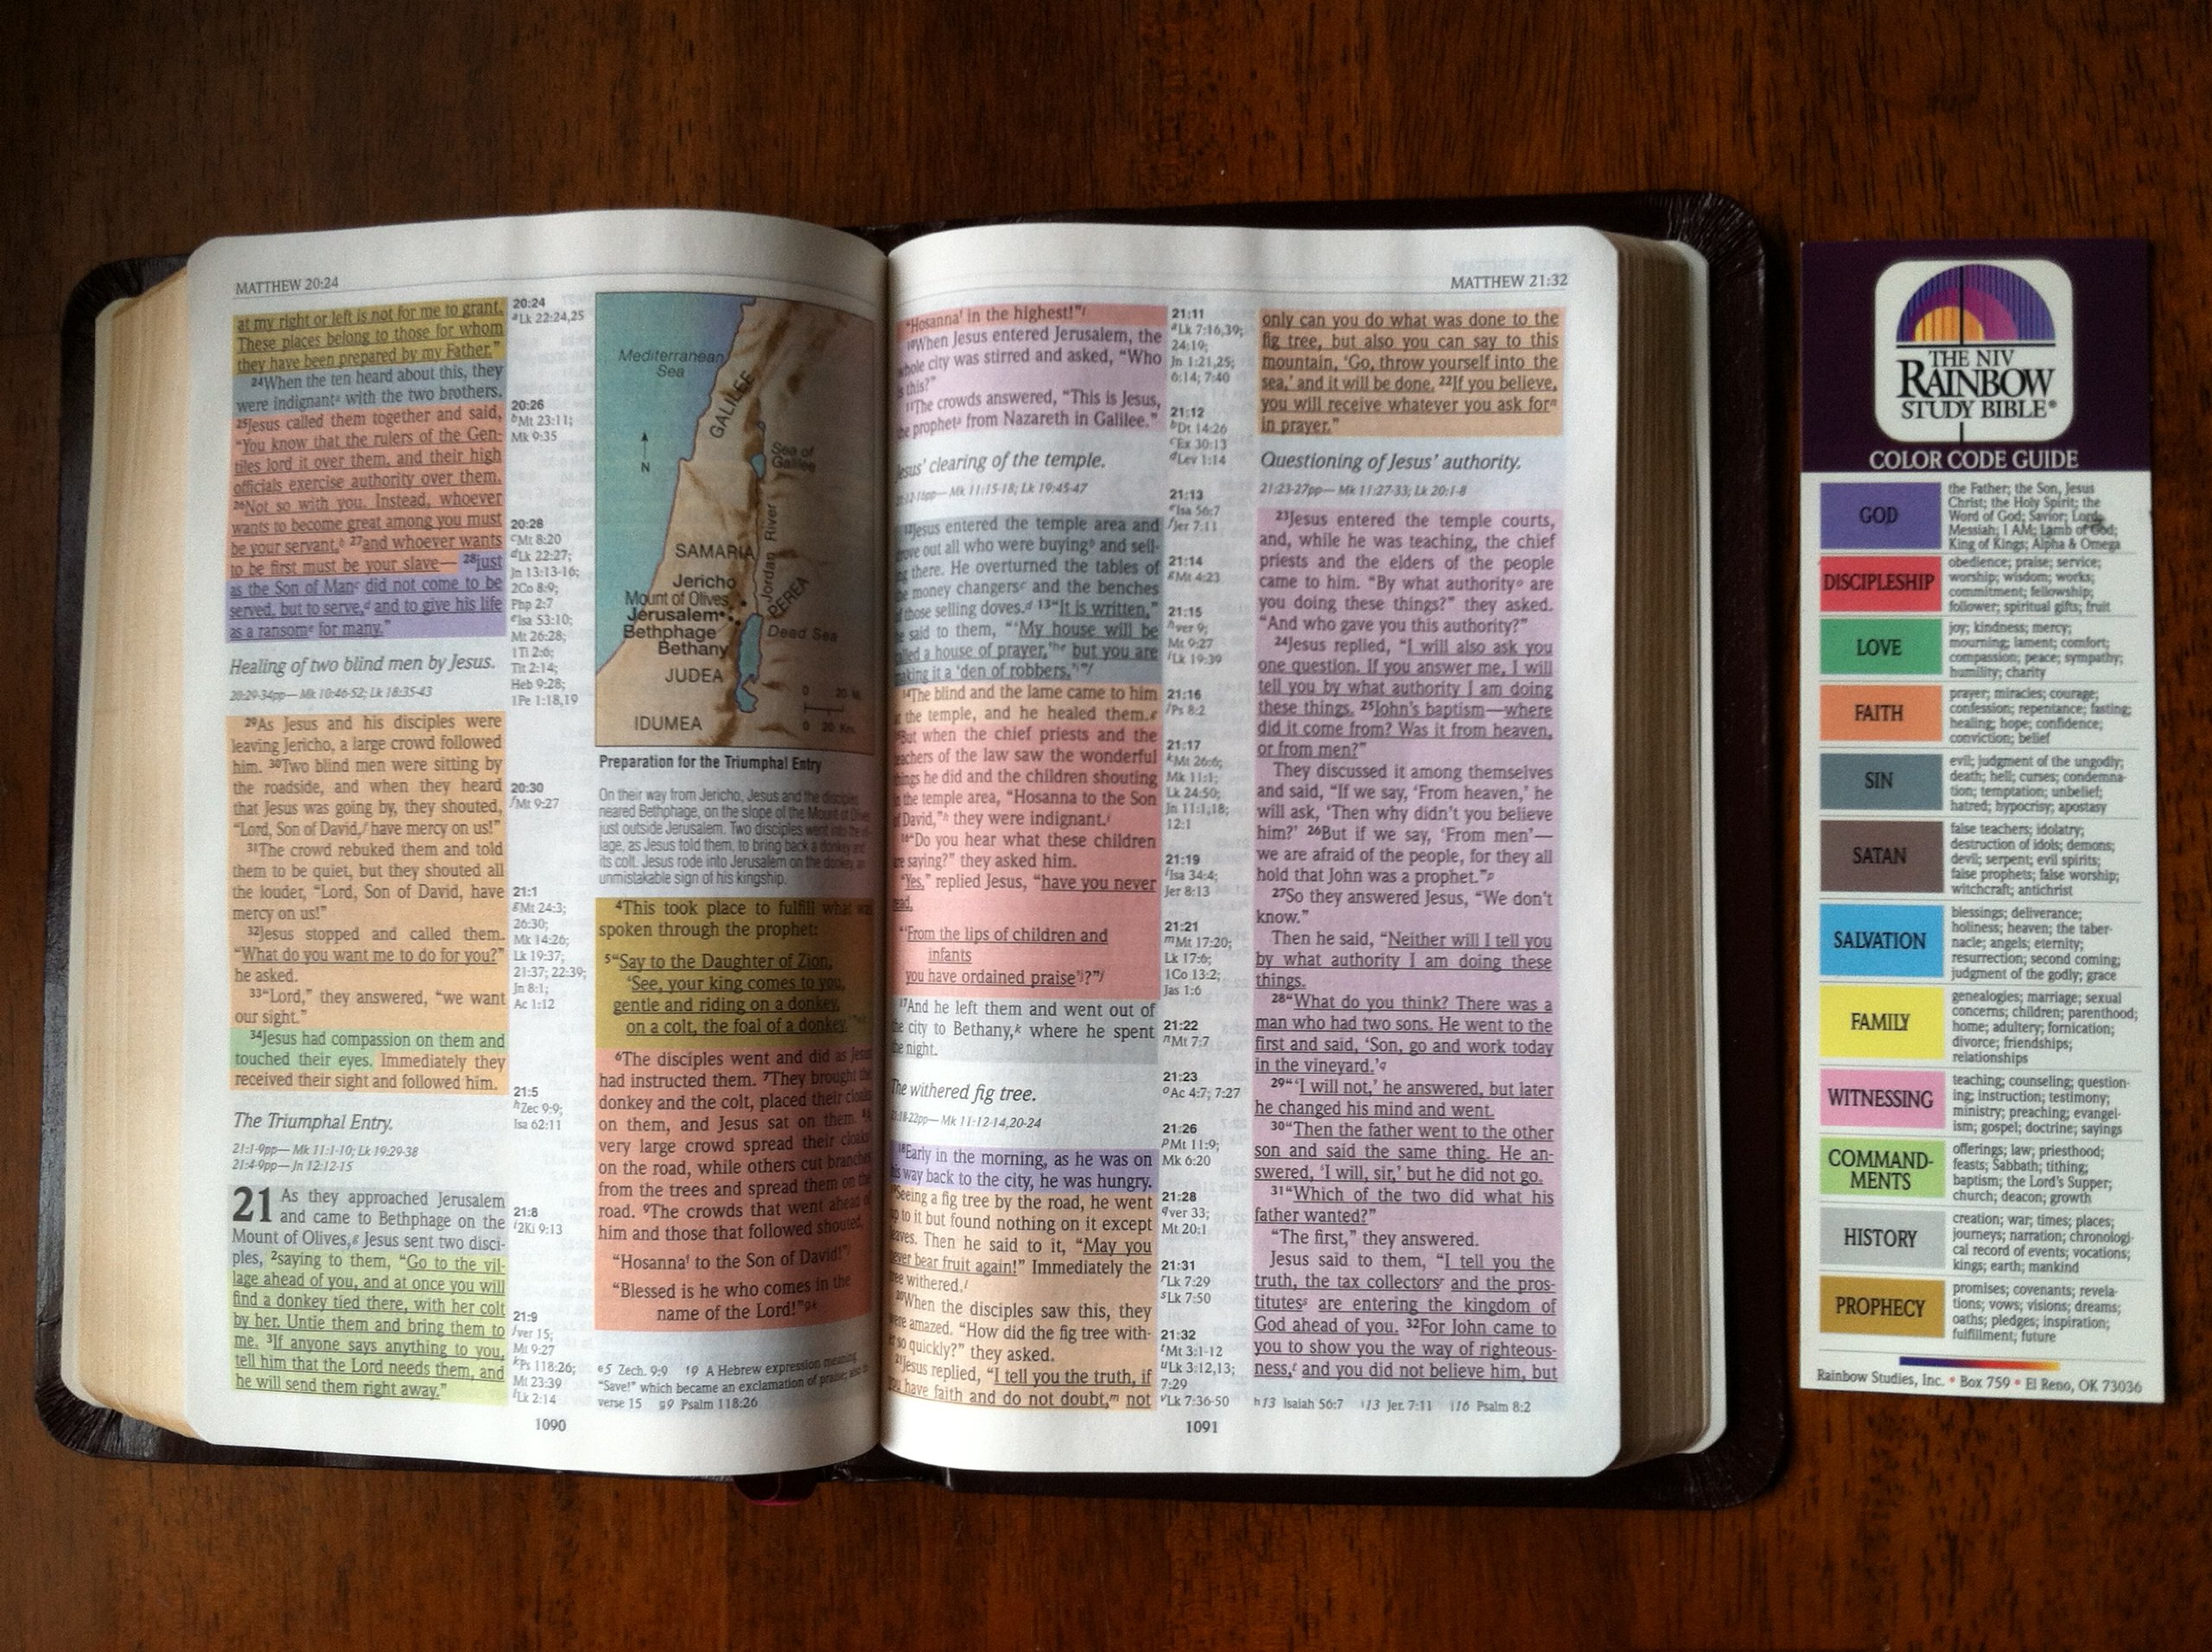 MATTHEW 20:24
at my right or left is not for me to grant.
These places belong to those for whom
they have been prepared by my Father.”
24When the ten heard about this, they
were indignanta with the two brothers.
25Jesus called them together and said,
“You know that the rulers of the Gen-
tiles lord it over them, and their high
officials exercise authority over them.
26Not so with you. Instead, whoever
wants to become great among you must
be your servant,b 27and whoever wants
to be first must be your slave— 28just
as the Son of Manc did not come to be
served, but to serve,d and to give his life
as a ransome for many.”
Healing of two blind men by Jesus.
20:29-34pp— Mk 10:46-52; Lk 18:35-43
29As Jesus and his disciples were
leaving Jericho, a large crowd followed
him. 30Two blind men were sitting by
the roadside, and when they heard
that Jesus was going by, they shouted,
“Lord, Son of David,f have mercy on us!”
31The crowd rebuked them and told
them to be quiet, but they shouted all
the louder, “Lord, Son of David, have
mercy on us!”
32Jesus stopped and called them.
“What do you want me to do for you?”
he asked.
33“Lord,” they answered, “we want
our sight.”
34Jesus had compassion on them and
touched their eyes. Immediately they
received their sight and followed him.
The Triumphal Entry.
21:1-9pp— Mk 11:1-10; Lk 19:29-38
21:4-9pp— Jn 12:12-15
21 As they approached Jerusalem
and came to Bethphage on the
Mount of Olives,g Jesus sent two disci-
ples, 2saying to them, “Go to the vil-
lage ahead of you, and at once you will
find a donkey tied there, with her colt
by her. Untie them and bring them to
me. 3If anyone says anything to you,
tell him that the Lord needs them, and
he will send them right away.”
20:24
aLk 22:24,25
20:26
bMt 23:11;
Mk 9:35
20:28
cMt 8:20
dLk 22:27;
Jn 13:13-16;
2Co 8:9;
Php 2:7
eIsa 53:10;
Mt 26:28;
1Ti 2:6;
Tit 2:14;
Heb 9:28;
1Pe 1:18,19
20:30
fMt 9:27
21:1
gMt 24:3;
26:30;
Mk 14:26;
Lk 19:37;
21:37; 22:39;
Jn 8:1;
Ac 1:12
21:5
hZec 9:9;
Isa 62:11
21:8
i2Ki 9:13
21:9
jver 15;
Mt 9:27
kPs 118:26;
Mt 23:39
lLk 2:14
Mediterranean
Sea
GALILEE
N
Sea of
Galilee
Jordan River
SAMARIA
PEREA
Jericho
Mount of Olives
Jerusalem
Bethphage
Bethany
Dead Sea
JUDEA
0 20 Mi.
0 20 Km.
IDUMEA
Preparation for the Triumphal Entry
On their way from Jericho, Jesus and the disciples
neared Bethphage, on the slope of the Mount of Olives
just outside Jerusalem. Two disciples went into the vil-
lage, as Jesus told them, to bring back a donkey and
its colt. Jesus rode into Jerusalem on the donkey, an
unmistakable sign of his kingship.
4This took place to fulfill what was
spoken through the prophet:
5“Say to the Daughter of Zion,
‘See, your king comes to you,
gentle and riding on a donkey,
on a colt, the foal of a donkey.’
6The disciples went and did as Jesus
had instructed them. 7They brought the
donkey and the colt, placed their cloaks
on them, and Jesus sat on them. 8A
very large crowd spread their cloaks
on the road, while others cut branches
from the trees and spread them on the
road. 9The crowds that went ahead of
him and those that followed shouted,
“Hosannaf to the Son of David!”j
“Blessed is he who comes in the
name of the Lord!”gk
e5 Zech. 9:9 f9 A Hebrew expression meaning
“Save!” which became an exclamation of praise; also in
verse 15 g9 Psalm 118:26
1090
MATTHEW 21:32
“Hosannaf in the highest!”l
10When Jesus entered Jerusalem, the
whole city was stirred and asked, “Who
is this?”
11The crowds answered, “This is Jesus,
the propheta from Nazareth in Galilee.”
Jesus’ clearing of the temple.
21:12-16pp— Mk 11:15-18; Lk 19:45-47
12Jesus entered the temple area and
drove out all who were buyingb and sell-
ing there. He overturned the tables of
the money changersc and the benches
of those selling doves.d 13“It is written,”
he said to them, “‘My house will be
called a house of prayer,’he but you are
making it a ‘den of robbers.’i”f
14The blind and the lame came to him
at the temple, and he healed them.g
15But when the chief priests and the
teachers of the law saw the wonderful
things he did and the children shouting
in the temple area, “Hosanna to the Son
of David,”h they were indignant.i
16“Do you hear what these children
are saying?” they asked him.
“Yes,” replied Jesus, “have you never
read,
“‘From the lips of children and
infants
you have ordained praise’j?”j
17And he left them and went out of
the city to Bethany,k where he spent
the night.
The withered fig tree.
21:18-22pp— Mk 11:12-14,20-24
18Early in the morning, as he was on
his way back to the city, he was hungry.
19Seeing a fig tree by the road, he went
up to it but found nothing on it except
leaves. Then he said to it, “May you
never bear fruit again!” Immediately the
tree withered.l
20When the disciples saw this, they
were amazed. “How did the fig tree with-
er so quickly?” they asked.
21Jesus replied, “I tell you the truth, if
you have faith and do not doubt,m not
21:11
aLk 7:16,39;
24:19;
Jn 1:21,25;
6:14; 7:40
21:12
bDt 14:26
cEx 30:13
dLev 1:14
21:13
eIsa 56:7
fJer 7:11
21:14
gMt 4:23
21:15
hver 9;
Mt 9:27
iLk 19:39
21:16
jPs 8:2
21:17
kMt 26:6;
Mk 11:1;
Lk 24:50;
Jn 11:1,18;
12:1
21:19
lIsa 34:4;
Jer 8:13
21:21
mMt 17:20;
Lk 17:6;
1Co 13:2;
Jas 1:6
21:22
nMt 7:7
21:23
oAc 4:7; 7:27
21:26
pMt 11:9;
Mk 6:20
21:28
qver 33;
Mt 20:1
21:31
rLk 7:29
sLk 7:50
21:32
tMt 3:1-12
uLk 3:12,13;
7:29
vLk 7:36-50
only can you do what was done to the
fig tree, but also you can say to this
mountain, ‘Go, throw yourself into the
sea,’ and it will be done. 22If you believe,
you will receive whatever you ask forn
in prayer.”
Questioning of Jesus’ authority.
21:23-27pp— Mk 11:27-33; Lk 20:1-8
23Jesus entered the temple courts,
and, while he was teaching, the chief
priests and the elders of the people
came to him. “By what authorityo are
you doing these things?” they asked.
“And who gave you this authority?”
24Jesus replied, “I will also ask you
one question. If you answer me, I will
tell you by what authority I am doing
these things. 25John’s baptism—where
did it come from? Was it from heaven,
or from men?”
They discussed it among themselves
and said, “If we say, ‘From heaven,’ he
will ask, ‘Then why didn’t you believe
him?’ 26But if we say, ‘From men’—
we are afraid of the people, for they all
hold that John was a prophet.”p
27So they answered Jesus, “We don’t
know.”
Then he said, “Neither will I tell you
by what authority I am doing these
things.
28“What do you think? There was a
man who had two sons. He went to the
first and said, ‘Son, go and work today
in the vineyard.’q
29“‘I will not,’ he answered, but later
he changed his mind and went.
30“Then the father went to the other
son and said the same thing. He an-
swered, ‘I will, sir,’ but he did not go.
31“Which of the two did what his
father wanted?”
“The first,” they answered.
Jesus said to them, “I tell you the
truth, the tax collectorsr and the pros-
titutess are entering the kingdom of
God ahead of you. 32For John came to
you to show you the way of righteous-
ness,t and you did not believe him, but
h13 Isaiah 56:7 i13 Jer. 7:11 j16 Psalm 8:2
1091
THE NIV
RAINBOW
STUDY BIBLE®
COLOR CODE GUIDE
GOD
the Father; the Son, Jesus
Christ; the Holy Spirit; the
Word of God; Savior; Lord;
Messiah; I AM; Lamb of God;
King of Kings; Alpha & Omega
DISCIPLESHIP
obedience; praise; service;
worship; wisdom; works;
commitment; fellowship;
follower; spiritual gifts; fruit
LOVE
joy; kindness; mercy;
mourning; lament; comfort;
compassion; peace; sympathy;
humility; charity
FAITH
prayer; miracles; courage;
confession; repentance; fasting;
healing; hope; confidence;
conviction; belief
SIN
evil; judgment of the ungodly;
death; hell; curses; condemna-
tion; temptation; unbelief;
hatred; hypocrisy; apostasy
SATAN
false teachers; idolatry;
destruction of idols; demons;
devil; serpent; evil spirits;
false prophets; false worship;
witchcraft; antichrist
SALVATION
blessings; deliverance;
holiness; heaven; the taber-
nacle; angels; eternity;
resurrection; second coming;
judgment of the godly; grace
FAMILY
genealogies; marriage; sexual
concerns; children; parenthood;
home; adultery; fornication;
divorce; friendships;
relationships
WITNESSING
teaching; counseling; question-
ing; instruction; testimony;
ministry; preaching; evangel-
ism; gospel; doctrine; sayings
COMMAND-
MENTS
offerings; law; priesthood;
feasts; Sabbath; tithing;
baptism; the Lord's Supper;
church; deacon; growth
HISTORY
creation; war; times; places;
journeys; narration; chronologi-
cal record of events; vocations;
kings; earth; mankind
PROPHECY
promises; covenants; revela-
tions; vows; visions; dreams;
oaths; pledges; inspiration;
fulfillment; future
Rainbow Studies, Inc. • Box 759 • El Reno, OK 73036